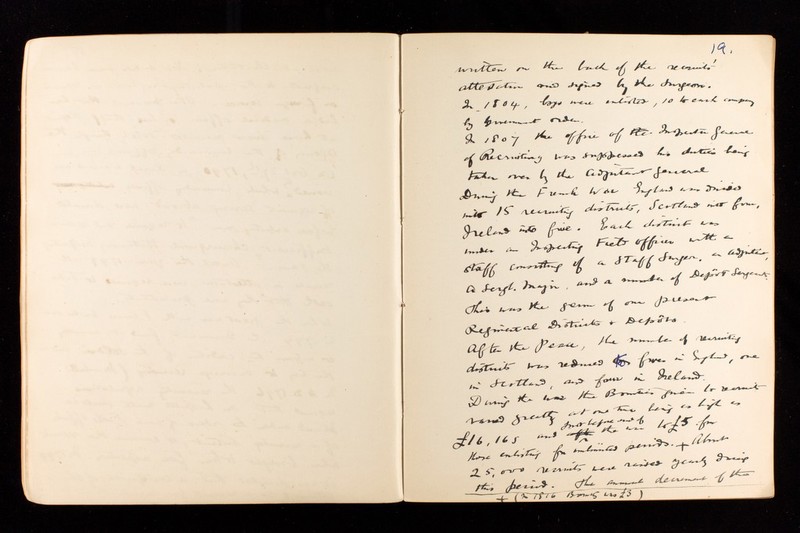 19.
written on the back of the recruits'
attestation and signed by the Surgeon.
In 1804, boys were enlisted, 10 to each company
by Government order.
In 1807 the office of the Inspector General
of Recruiting was suppressed his duties being
taken over by the Adjutant General
During the French War England was divided
into 15 recruiting districts, Scotland into four,
Ireland into five. Each district was
under an Inspecting Field Officer with a
staff consisting of a Staff Surgeon, an adjutant,
a Sergt. Major, and a number of Depôt Sergeants.
This was the germ of our present
Regimental Districts & Depôts.
After the Peace, the number of recruiting
districts was reduced to five in England, one
in Scotland, and four in Ireland.
During the war the Bounties given to recruits
varied greatly at one time being as high as
£16, 16s and just before end of the war to £5 for
those enlisting for unlimited periods. + About
25,000 recruits were raised yearly during
this period. The annual decrement of the
+ (In 1816 Bounty was £3)